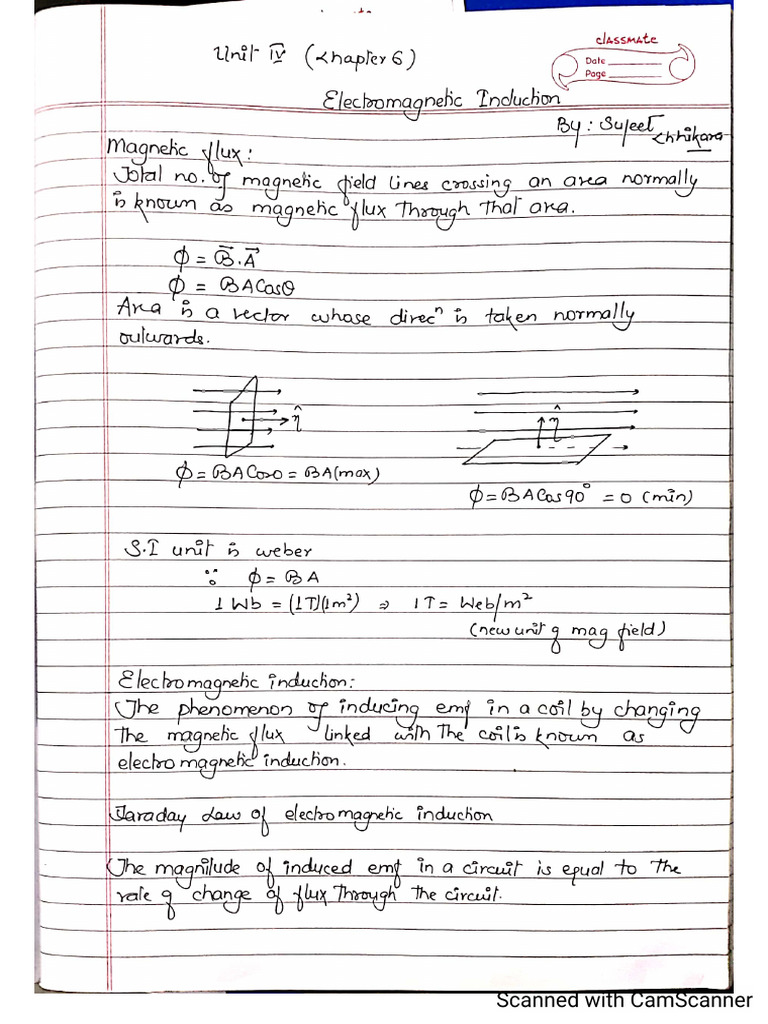 classmate
Date
Page
Unit IV (Chapter 6)
Electromagnetic Induction
By: Sujeet Chhikara
Magnetic flux:
Total no. of magnetic field lines crossing an area normally
is known as magnetic flux through that area.
ϕ = B⃗.A⃗
ϕ = BACosθ
Area is a vector whose direcⁿ is taken normally
outwards.
n̂
n̂
ϕ = BACos0 = BA(max)
ϕ=BACos90° = 0 (min)
S.I unit is weber
∵ ϕ = BA
1 Wb = (1T)(1m²) ⇒ 1T = Web/m²
(new unit of mag field)
Electromagnetic induction:
The phenomenon of inducing emf in a coil by changing
the magnetic flux linked with the coil is known as
electromagnetic induction.
Faraday Law of electromagnetic induction
The magnitude of induced emf in a circuit is equal to the
rate of change of flux through the circuit.
Scanned with CamScanner